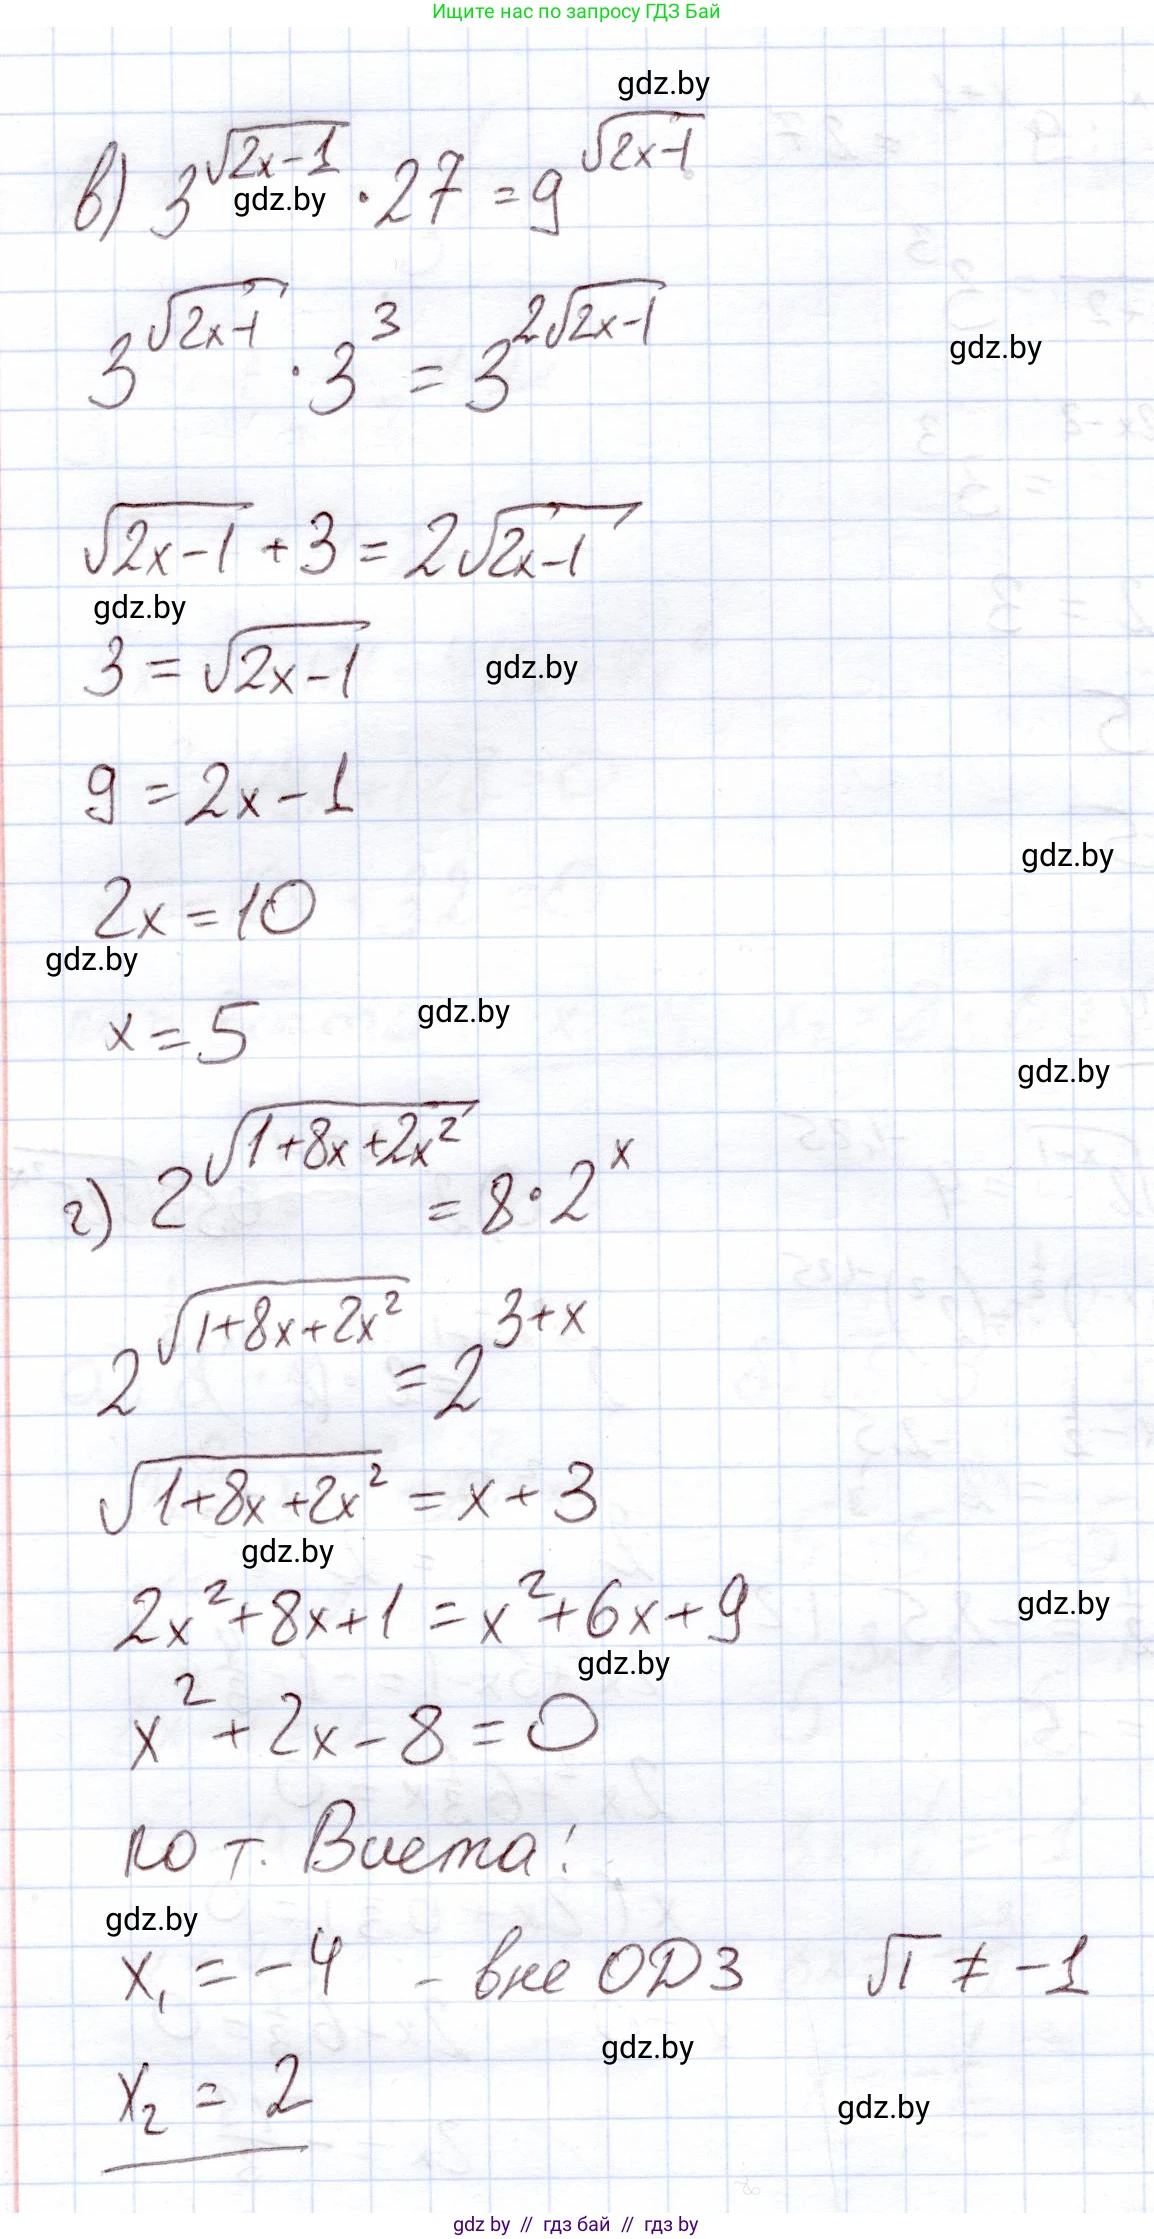 Ищите нас по запросу ГДЗ Бай
gdz.by
в) 3^√(2x-1) · 27 = 9^√(2x-1)
gdz.by
3^√(2x-1) · 3^3 = 3^(2√(2x-1))
gdz.by
√(2x-1) + 3 = 2√(2x-1)
gdz.by
3 = √(2x-1)
gdz.by
9 = 2x - 1
gdz.by
2x = 10
gdz.by
x = 5
gdz.by
gdz.by
г) 2^√(1+8x+2x²) = 8 · 2^x
2^√(1+8x+2x²) = 2^(3+x)
√(1+8x+2x²) = x + 3
gdz.by
2x² + 8x + 1 = x² + 6x + 9
gdz.by
gdz.by
x² + 2x - 8 = 0
по т. Виета:
gdz.by
x₁ = -4 - вне ОДЗ √1 ≠ -1
gdz.by
x₂ = 2
gdz.by
gdz.by // гдз бай // гдз by